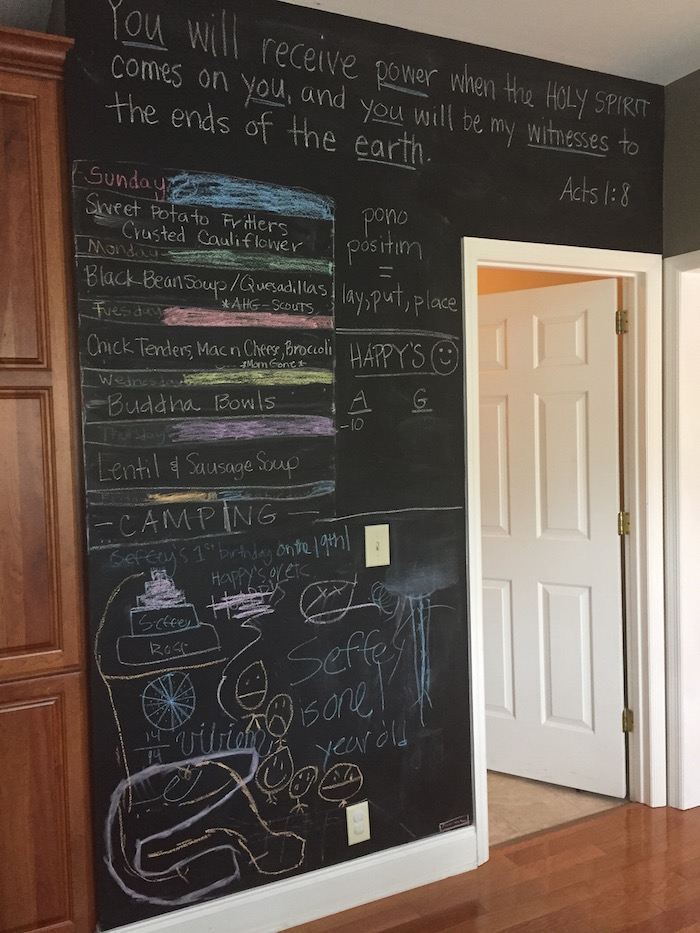 You will receive power when the HOLY SPIRIT
comes on you, and you will be my witnesses to
the ends of the earth.
Acts 1:8
Sunday
Sweet Potato Fritters
Crusted Cauliflower
Monday
Black Bean Soup/Quesadillas
*AHG-Scouts
Tuesday
Chick Tenders, Mac n Cheese, Broccoli
*Mom Gone*
Wednesday
Buddha Bowls
Thursday
Lentil & Sausage Soup
-CAMPING-
pono
positim
=
lay, put, place
HAPPY'S
A G
-10
Seffey's 1st birthday on the 19th!
Happy's
Seffey
Rose
Seffey
is one
year old